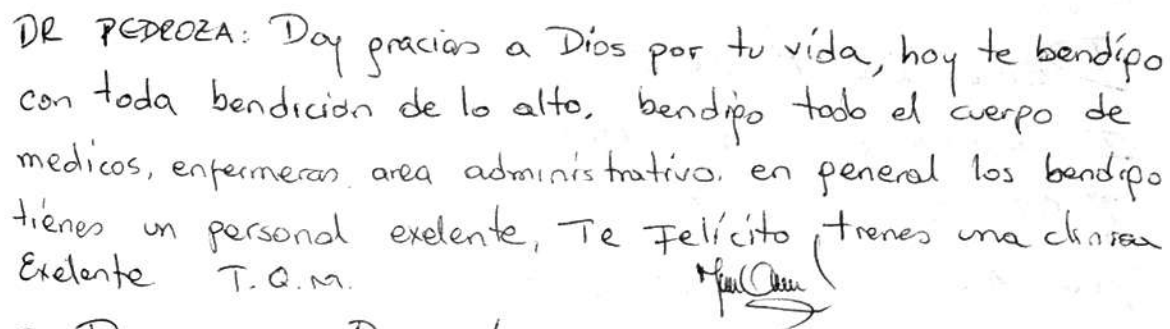 DR PEDROZA: Doy gracias a Dios por tu vida, hoy te bendigo
con toda bendición de lo alto. bendigo todo el cuerpo de
medicos, enfermeras area administrativo. en general los bendigo
tienes un personal exelente, Te Felicito, tienes una clinica
Exelente T.Q.M.